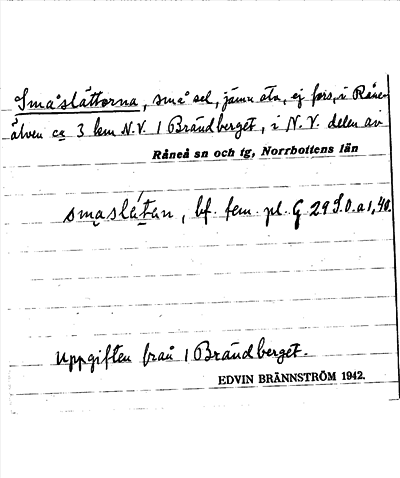 Småslåttorna, små sel, jämn älv, ej fors, i Råne
älven ca 3 km N.V. / Brändberget, i N.V. delen av
Råneå sn och tg, Norrbottens län
smaslåtan, bf. fem. pl. G. 29 S.O. a 1, 40.
Uppgiften från / Brändberget.
EDVIN BRÄNNSTRÖM 1942.